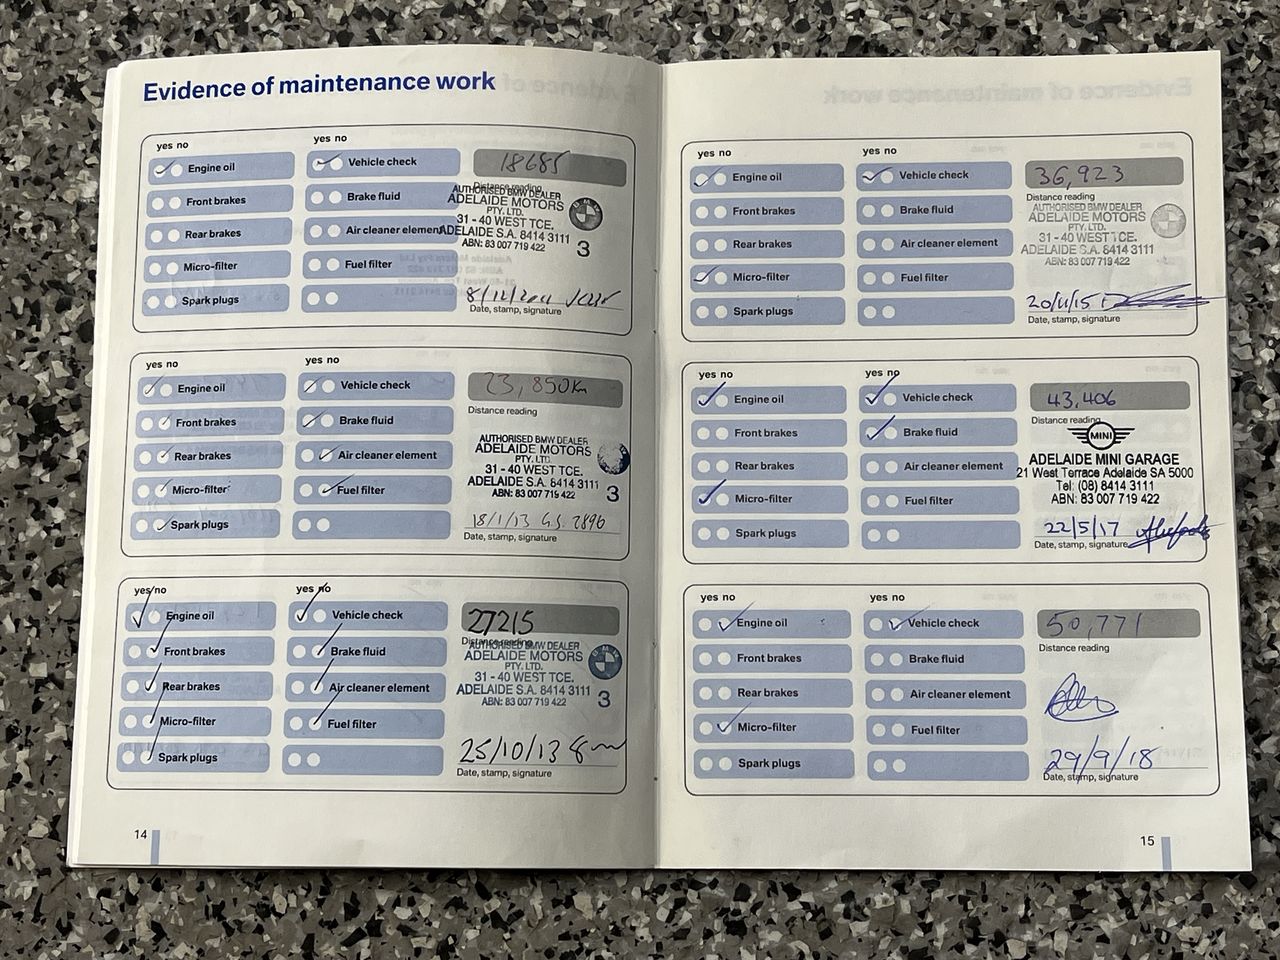 Evidence of maintenance work
yes no
yes no
Engine oil
Vehicle check
18685
Distance reading
Front brakes
Brake fluid
Rear brakes
Air cleaner element
Micro-filter
Fuel filter
Spark plugs
AUTHORISED BMW DEALER
ADELAIDE MOTORS
PTY. LTD.
31 - 40 WEST TCE.
ADELAIDE S.A. 8414 3111
ABN: 83 007 719 422
3
8/12/2011
Date, stamp, signature
yes no
yes no
Engine oil
Vehicle check
23,850km
Distance reading
Front brakes
Brake fluid
Rear brakes
Air cleaner element
Micro-filter
Fuel filter
Spark plugs
AUTHORISED BMW DEALER
ADELAIDE MOTORS
PTY. LTD.
31 - 40 WEST TCE.
ADELAIDE S.A. 8414 3111
ABN: 83 007 719 422
3
18/1/13 G.S. 2896
Date, stamp, signature
yes no
yes no
Engine oil
Vehicle check
27215
Distance reading
Front brakes
Brake fluid
Rear brakes
Air cleaner element
Micro-filter
Fuel filter
Spark plugs
AUTHORISED BMW DEALER
ADELAIDE MOTORS
PTY. LTD.
31 - 40 WEST TCE.
ADELAIDE S.A. 8414 3111
ABN: 83 007 719 422
3
25/10/13
Date, stamp, signature
14
yes no
yes no
Engine oil
Vehicle check
36,923
Distance reading
Front brakes
Brake fluid
Rear brakes
Air cleaner element
Micro-filter
Fuel filter
Spark plugs
AUTHORISED BMW DEALER
ADELAIDE MOTORS
PTY. LTD.
31 - 40 WEST TCE.
ADELAIDE S.A. 8414 3111
ABN: 83 007 719 422
20/11/15
Date, stamp, signature
yes no
yes no
Engine oil
Vehicle check
43,406
Distance reading
Front brakes
Brake fluid
Rear brakes
Air cleaner element
Micro-filter
Fuel filter
Spark plugs
MINI
ADELAIDE MINI GARAGE
21 West Terrace Adelaide SA 5000
Tel: (08) 8414 3111
ABN: 83 007 719 422
22/5/17
Date, stamp, signature
yes no
yes no
Engine oil
Vehicle check
50,771
Distance reading
Front brakes
Brake fluid
Rear brakes
Air cleaner element
Micro-filter
Fuel filter
Spark plugs
29/9/18
Date, stamp, signature
15